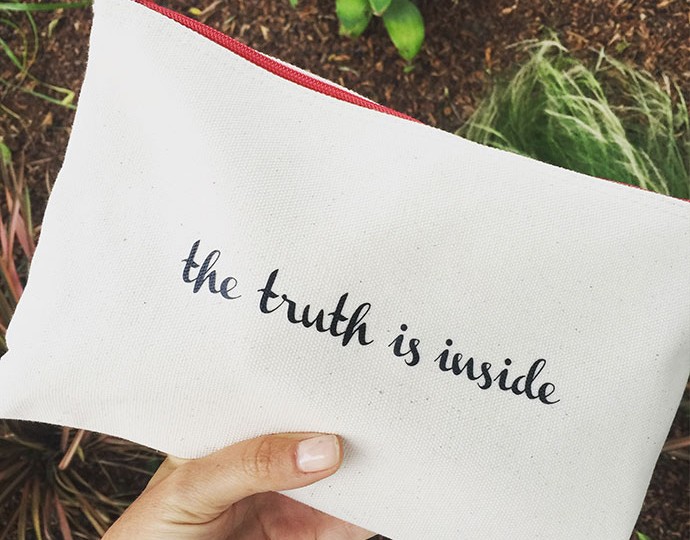 the truth is inside